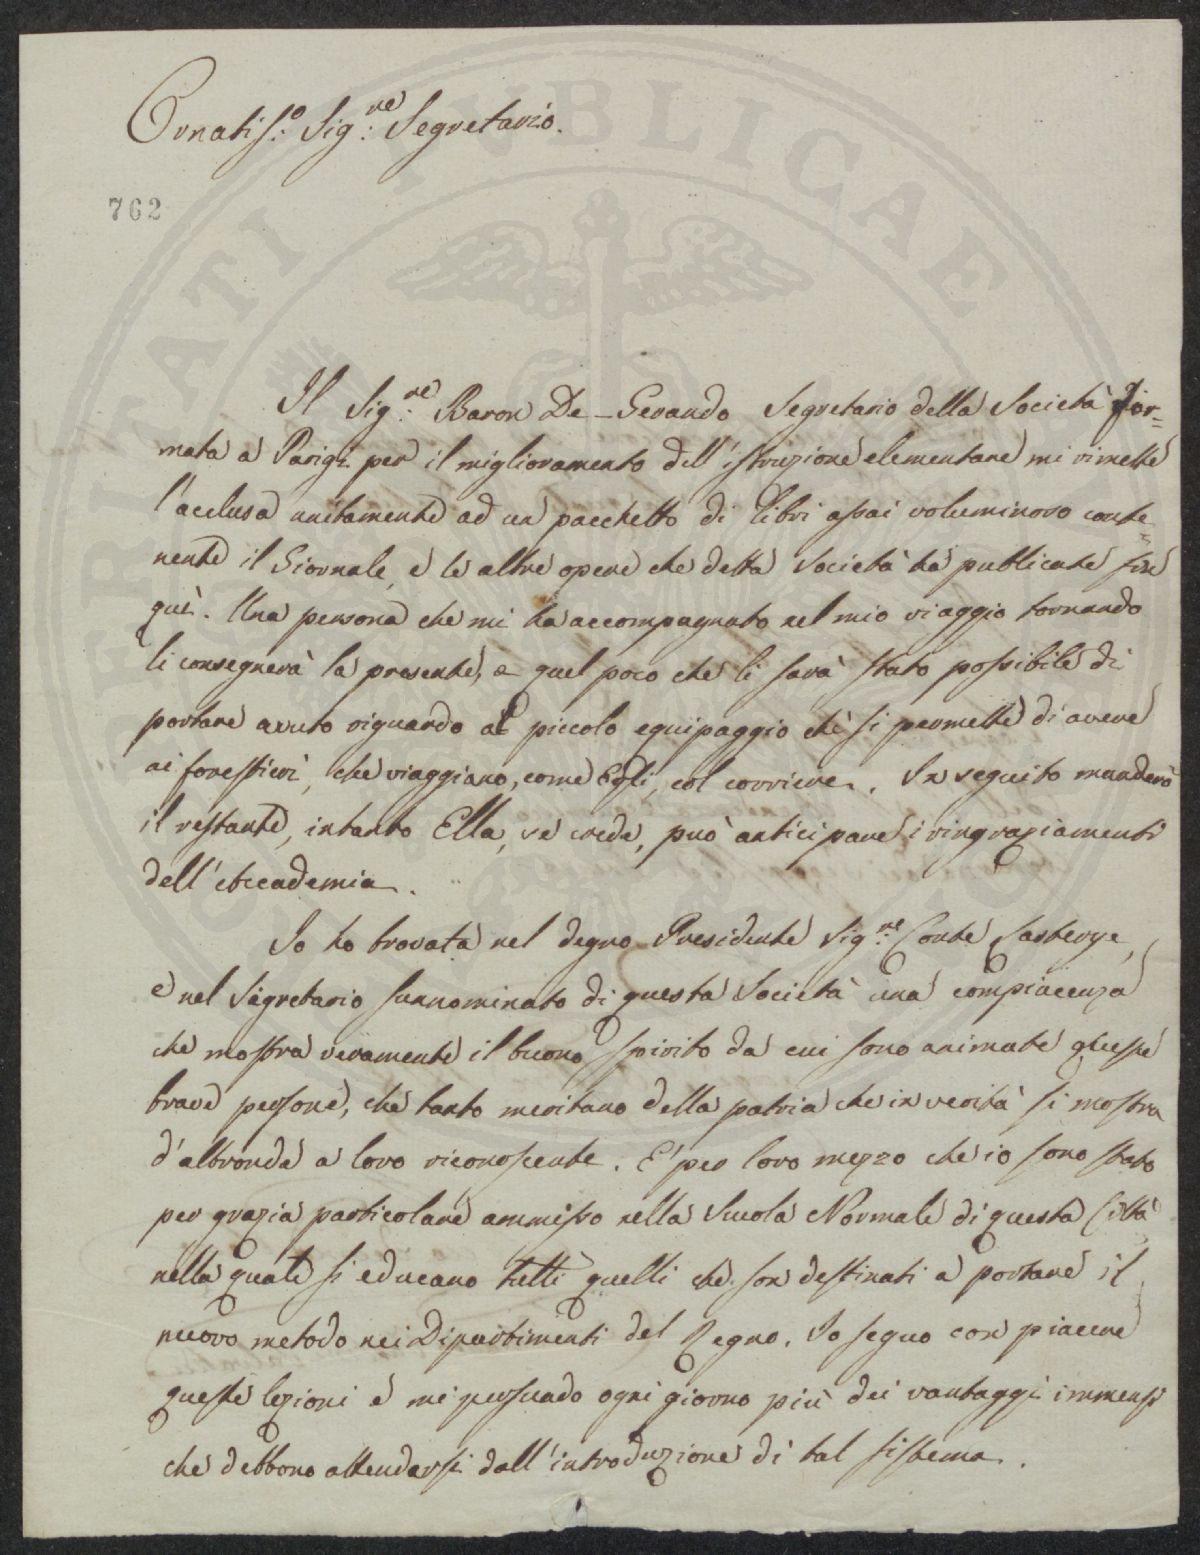 Ornatis.o Sig.re Segretario.
762
Il Sig.re Baron De-Gerando Segretario della Società for=
mata a Parigi per il miglioramento dell'istruzione elementare mi rimette
l'acclusa unitamente ad un pacchetto di libri assai voluminoso conte
nente il Giornale, e le altre opere che detta Società ha pubblicate fin
quì. Una persona che mi ha accompagnato nel mio viaggio tornando
li consegnerà la presente, e quel poco che li sarà stato possibile di
portare avuto riguardo al piccolo equipaggio chè si permette di avere
ai forestieri, che viaggiano, come Egli, col corriere. In seguito manderò
il restante, intanto Ella, se crede, può anticipare i ringraziamenti
dell'Accademia.
Io ho trovata nel degno Presidente Sig.re Conte Lasteyrie,
e nel Segretario sunnominato di questa Società una compiacenza
che mostra veramente il buono spirito da cui sono animate queste
brave persone, che tanto meritano della patria che in verità si mostra
d'altronde a loro riconoscente. E' per loro mezzo che io sono stato
per grazia particolare ammesso nella Scuola Normale di questa Città
nella quale si educano tutti quelli che son destinati a portare il
nuovo metodo nei Dipartimenti del Regno. Io seguo con piacere
queste lezioni e mi persuado ogni giorno più dei vantaggi immensi
che debbono attendersi dall'introduzione di tal sistema.
PVBLICAE